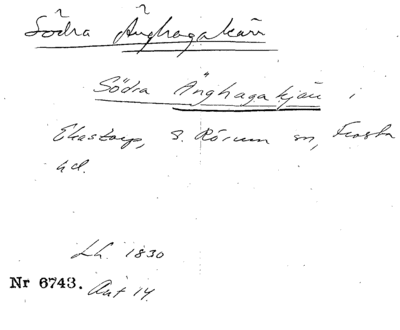 Södra Änghagakärr
Södra Änghagakjärr i
Ekastorp, S. Rörum sn, Frosta
hd.
Lh. 1830
Nr 6743. Akt 14.